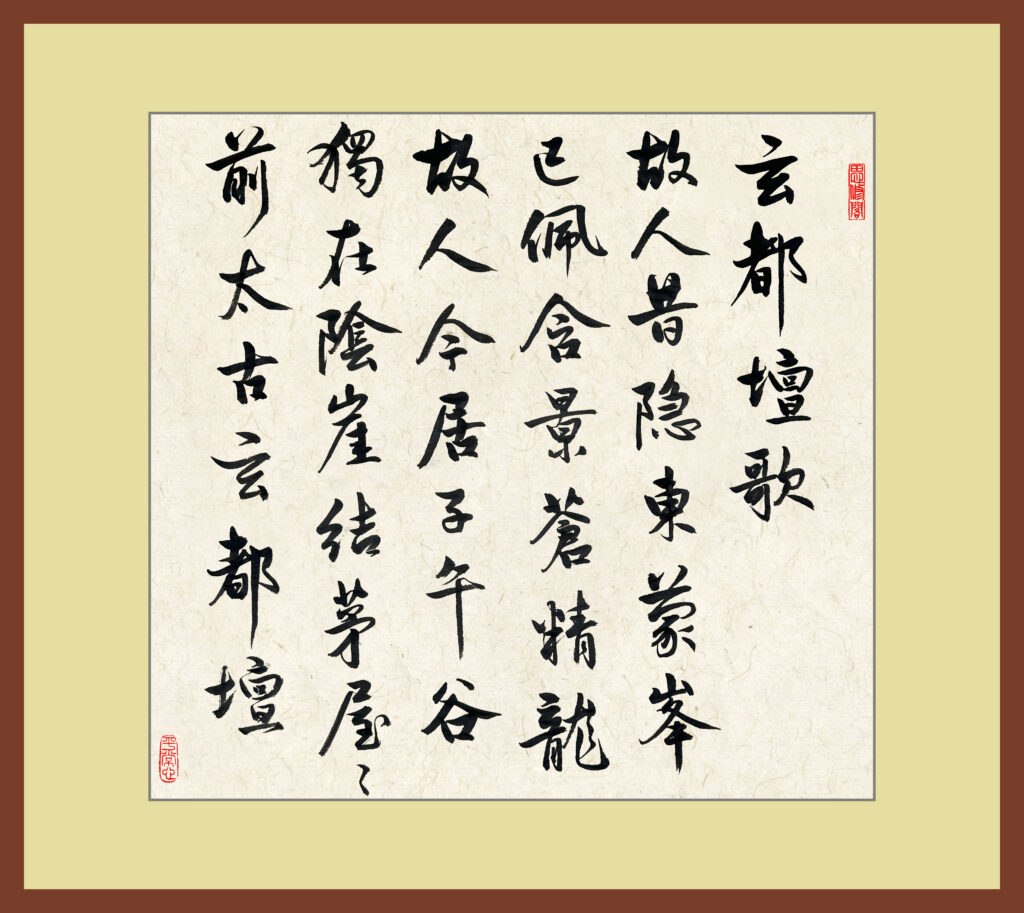 思修閣
玄都壇歌
故人昔隐東蒙峯
已佩含景蒼精龍
故人今居子午谷
獨在陰崖結茅屋〻
前太古玄都壇